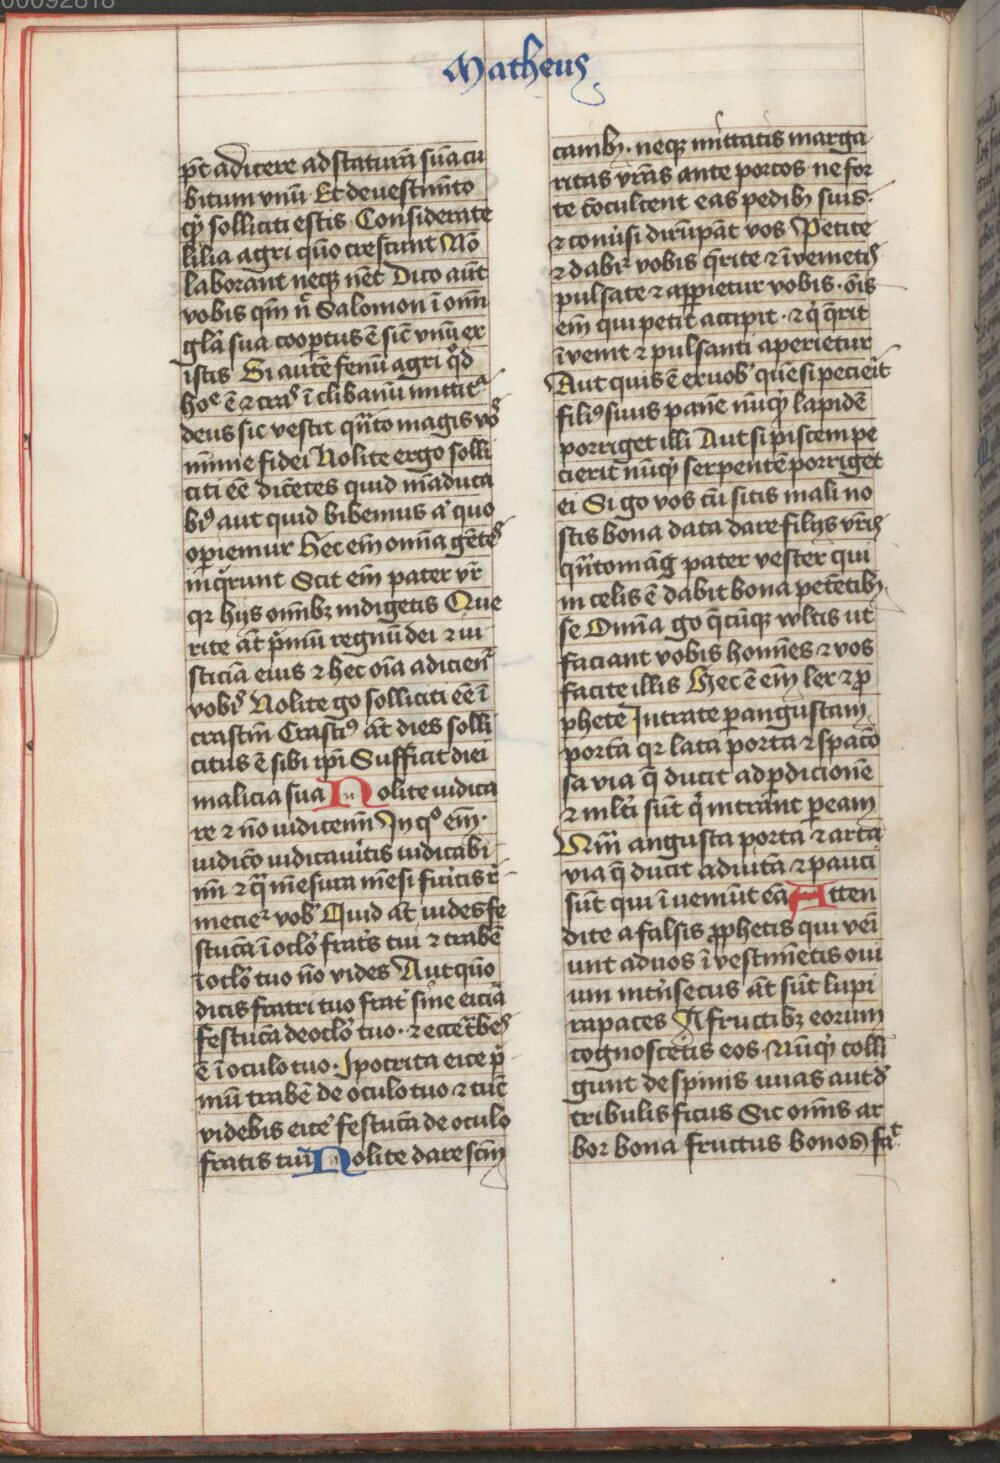 00092818
Matheus
pt̄ adicere ad staturā suā cu
bitum vnū Et de vestimēto
qͥd solliciti estis Considerate
lilia agri quō crescunt Nō
laborant neqꝫ nēt Dico aūt
vobis qm̄ n̄ Salomon ī omī
gl̄a sua coop̄tus ē sic̄ vnū ex
istis Si autē fenū agri qd̄
hoͩe ē ⁊ cras ī clibanū mittitͬ
deus sic vestit qͣnto magis vos
mīme fidei Nolite ergo solli
citi eē dicētes quid māduca
bimꝰ aut quid bibemus aͭ quo
operiemur Hec em̄ omīa gētes
inqͥrunt Scit em̄ pater vr̄
qꝛ hijs omībꝫ indigetis Que
rite āt pͥmū regnū dei ⁊ iu
sticiā eius ⁊ hec oīa adicienͬ
vobis Nolite gͦ solliciti eē ī
crastīn Crastīꝰ āt dies solli
citus ē sibi ip̄i Sufficit diei
malicia sua Nolite iudica
re ⁊ nō iudicem̄ In qͦ em̄
iudicō iudicaūitis iudicabi
mī ⁊ qͣ mēsura mēsi fūitis r̄
metieͬ vobˢ Quid āt uides fe
stucā ī oclō fratͥs tui ⁊ trabē
ī oclō tuo nō vides Aut quō
dicis fratri tuo frat̄ sine eiciā
festucā de oclō tuo · ⁊ ecce tͣbes
ē ī oculo tuo · Ipocrita eice pͥ
mū trabē de oculo tuo ⁊ tūc
videbis eiceͬ festucā de oculo
fratis tui Nolite dare scm̄
canibꝫ · neqꝫ mittatis marga
ritas vr̄as ante porcos ne for
te cōculcent eas pedibꝫ suis ·
⁊ conūsi dirūpāt vos Petite
⁊ dabiͬ vobis q̄rite ⁊ īuemetis
pulsate ⁊ app̄ietur vobis · oīs
em̄ qui petit accipit · ⁊ qͥ q̄rit
īvenit ⁊ pulsanti aperietur
Aut quis ē ex uobˢ quē si pecieīt
filiꝰ suus panē nūqͥd lapidē
porriget illi Aut si piscem pe
cierit nūqͥd serpentē porriget
ei Si gͦ vos cū sitis mali no
stis bona data dare filijs vr̄is
qͣntomāg pater vester qui
in celis ē dabit bona petētibꝫ
se Omīa gͦ q̄cūqꝫ wltis ut
faciant vobis homīes ⁊ vos
facite illis Hec ē em̄ lex ⁊ ꝓ
phete Intrate p angustam
portā qꝛ lata porta ⁊ spacō
sa via q̄ ducit ad ꝑdicionē
⁊ mlt̄i sūt qͥ intrant ꝑ eam
Qm̄ angusta porta ⁊ arta
via q̄ ducit ad uitā ⁊ pauci
sūt qui īueniūt eā Atten
dite a falsis ꝓphetis qui veī
unt ad uos ī vestimētis oui
um intͥsecus āt sūt lupi
rapaces A fructibꝫ eorum
cognoscetis eos Nūqͥd colli
gunt de spinis uuas aut dͤ
tribulis ficus Sic omīs ar
bor bona fructus bonos facͭ